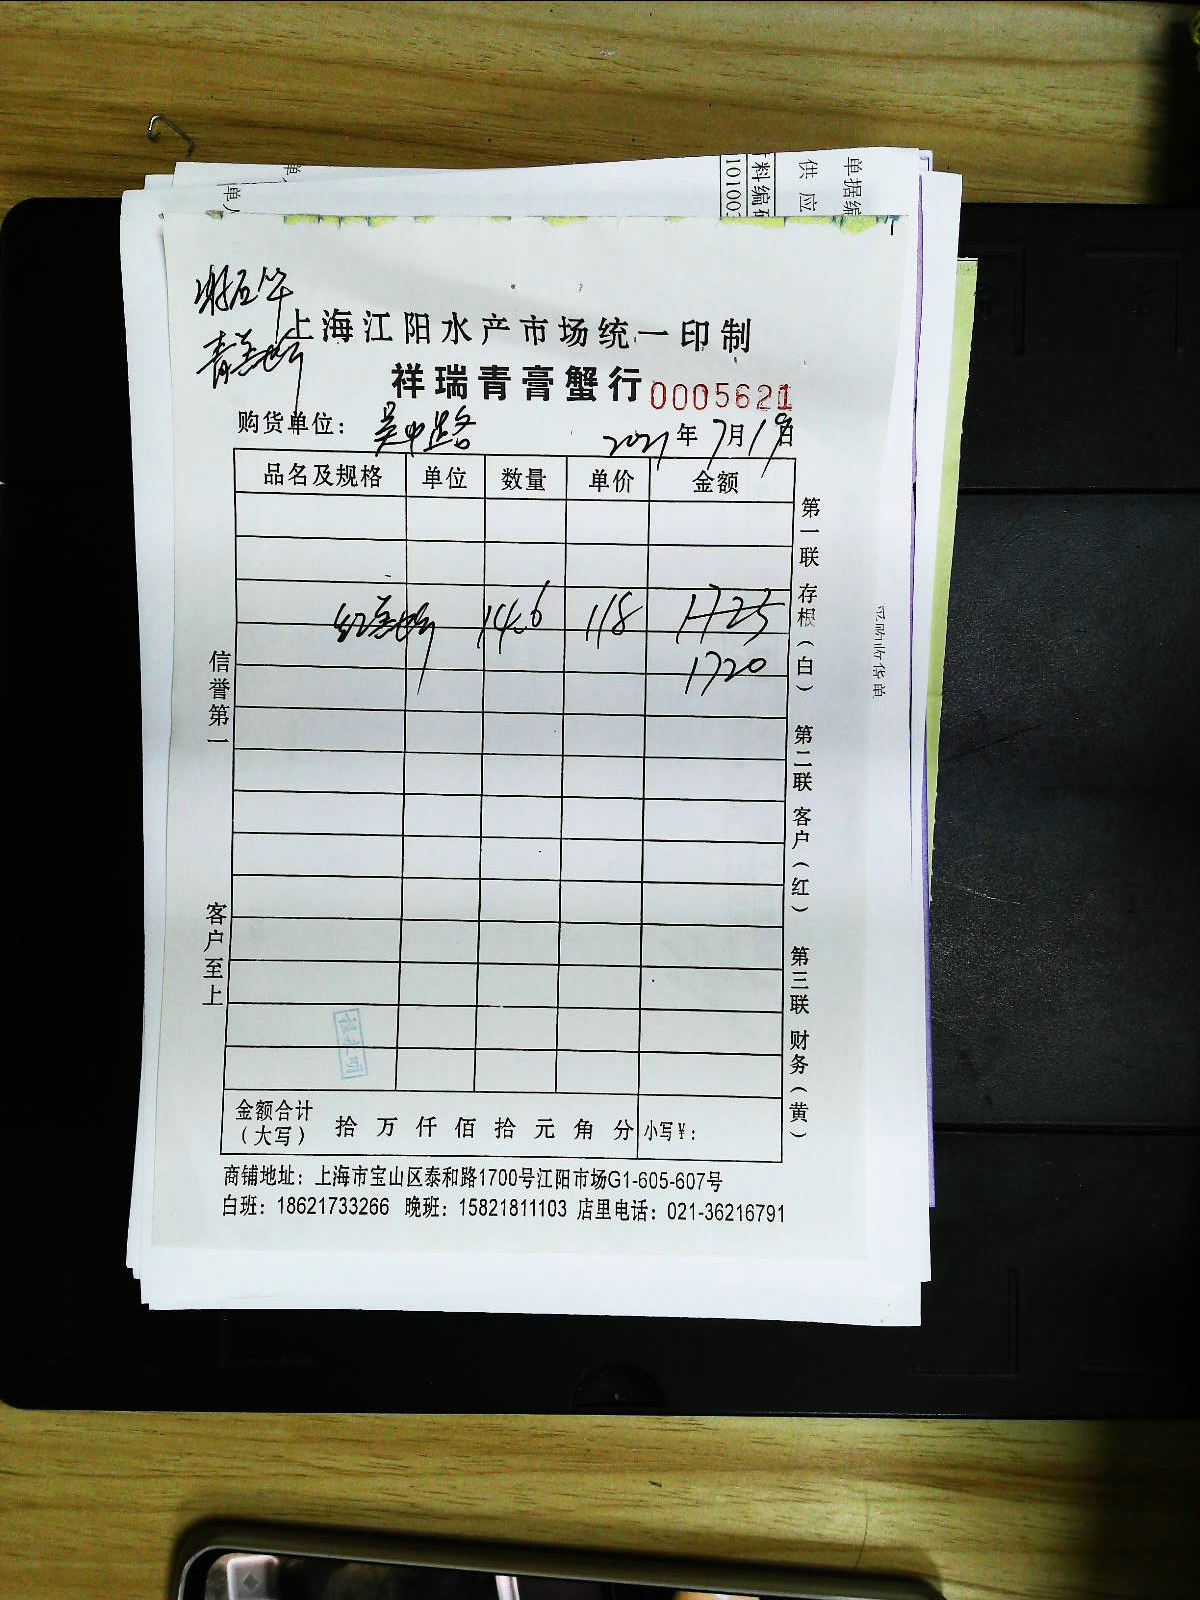 单据编
供应
料编码
10100
单
单
上海江阳水产市场统一印制
祥瑞青膏蟹行 0005621
购货单位：吴中路 2021年7月19日
品名及规格 单位 数量 单价 金额
14.6 118 1725
1720
信誉第一 客户至上
第一联 存根（白） 第二联 客户（红） 第三联 财务（黄）
金额合计（大写） 拾万仟佰拾元角分 小写￥：
商铺地址：上海市宝山区泰和路1700号江阳市场G1-605-607号
白班：18621733266 晚班：15821811103 店里电话：021-36216791